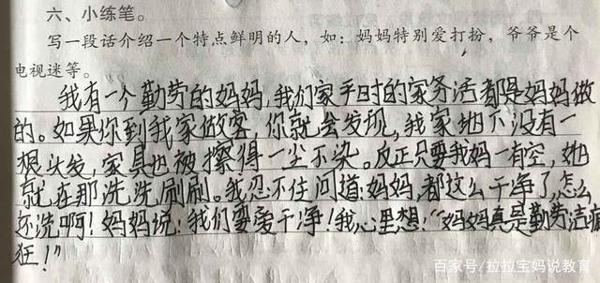 六、小练笔。
写一段话介绍一个特点鲜明的人,如:妈妈特别爱打扮,爷爷是个
电视迷等。
我有一个勤劳的妈妈,我们家平时的家务活都是妈妈做
的。如果你到我家做客,你就会发现,我家地下没有一
根头发,家具也被擦得一尘不染。反正只要我妈一有空,她
就在那洗洗刷刷。我忍不住问道:妈妈,都这么干净了,怎么
还洗啊!妈妈说:我们要爱干净!我心里想:“妈妈真是勤劳洁癖
狂!”
百家号/拉拉宝妈说教育